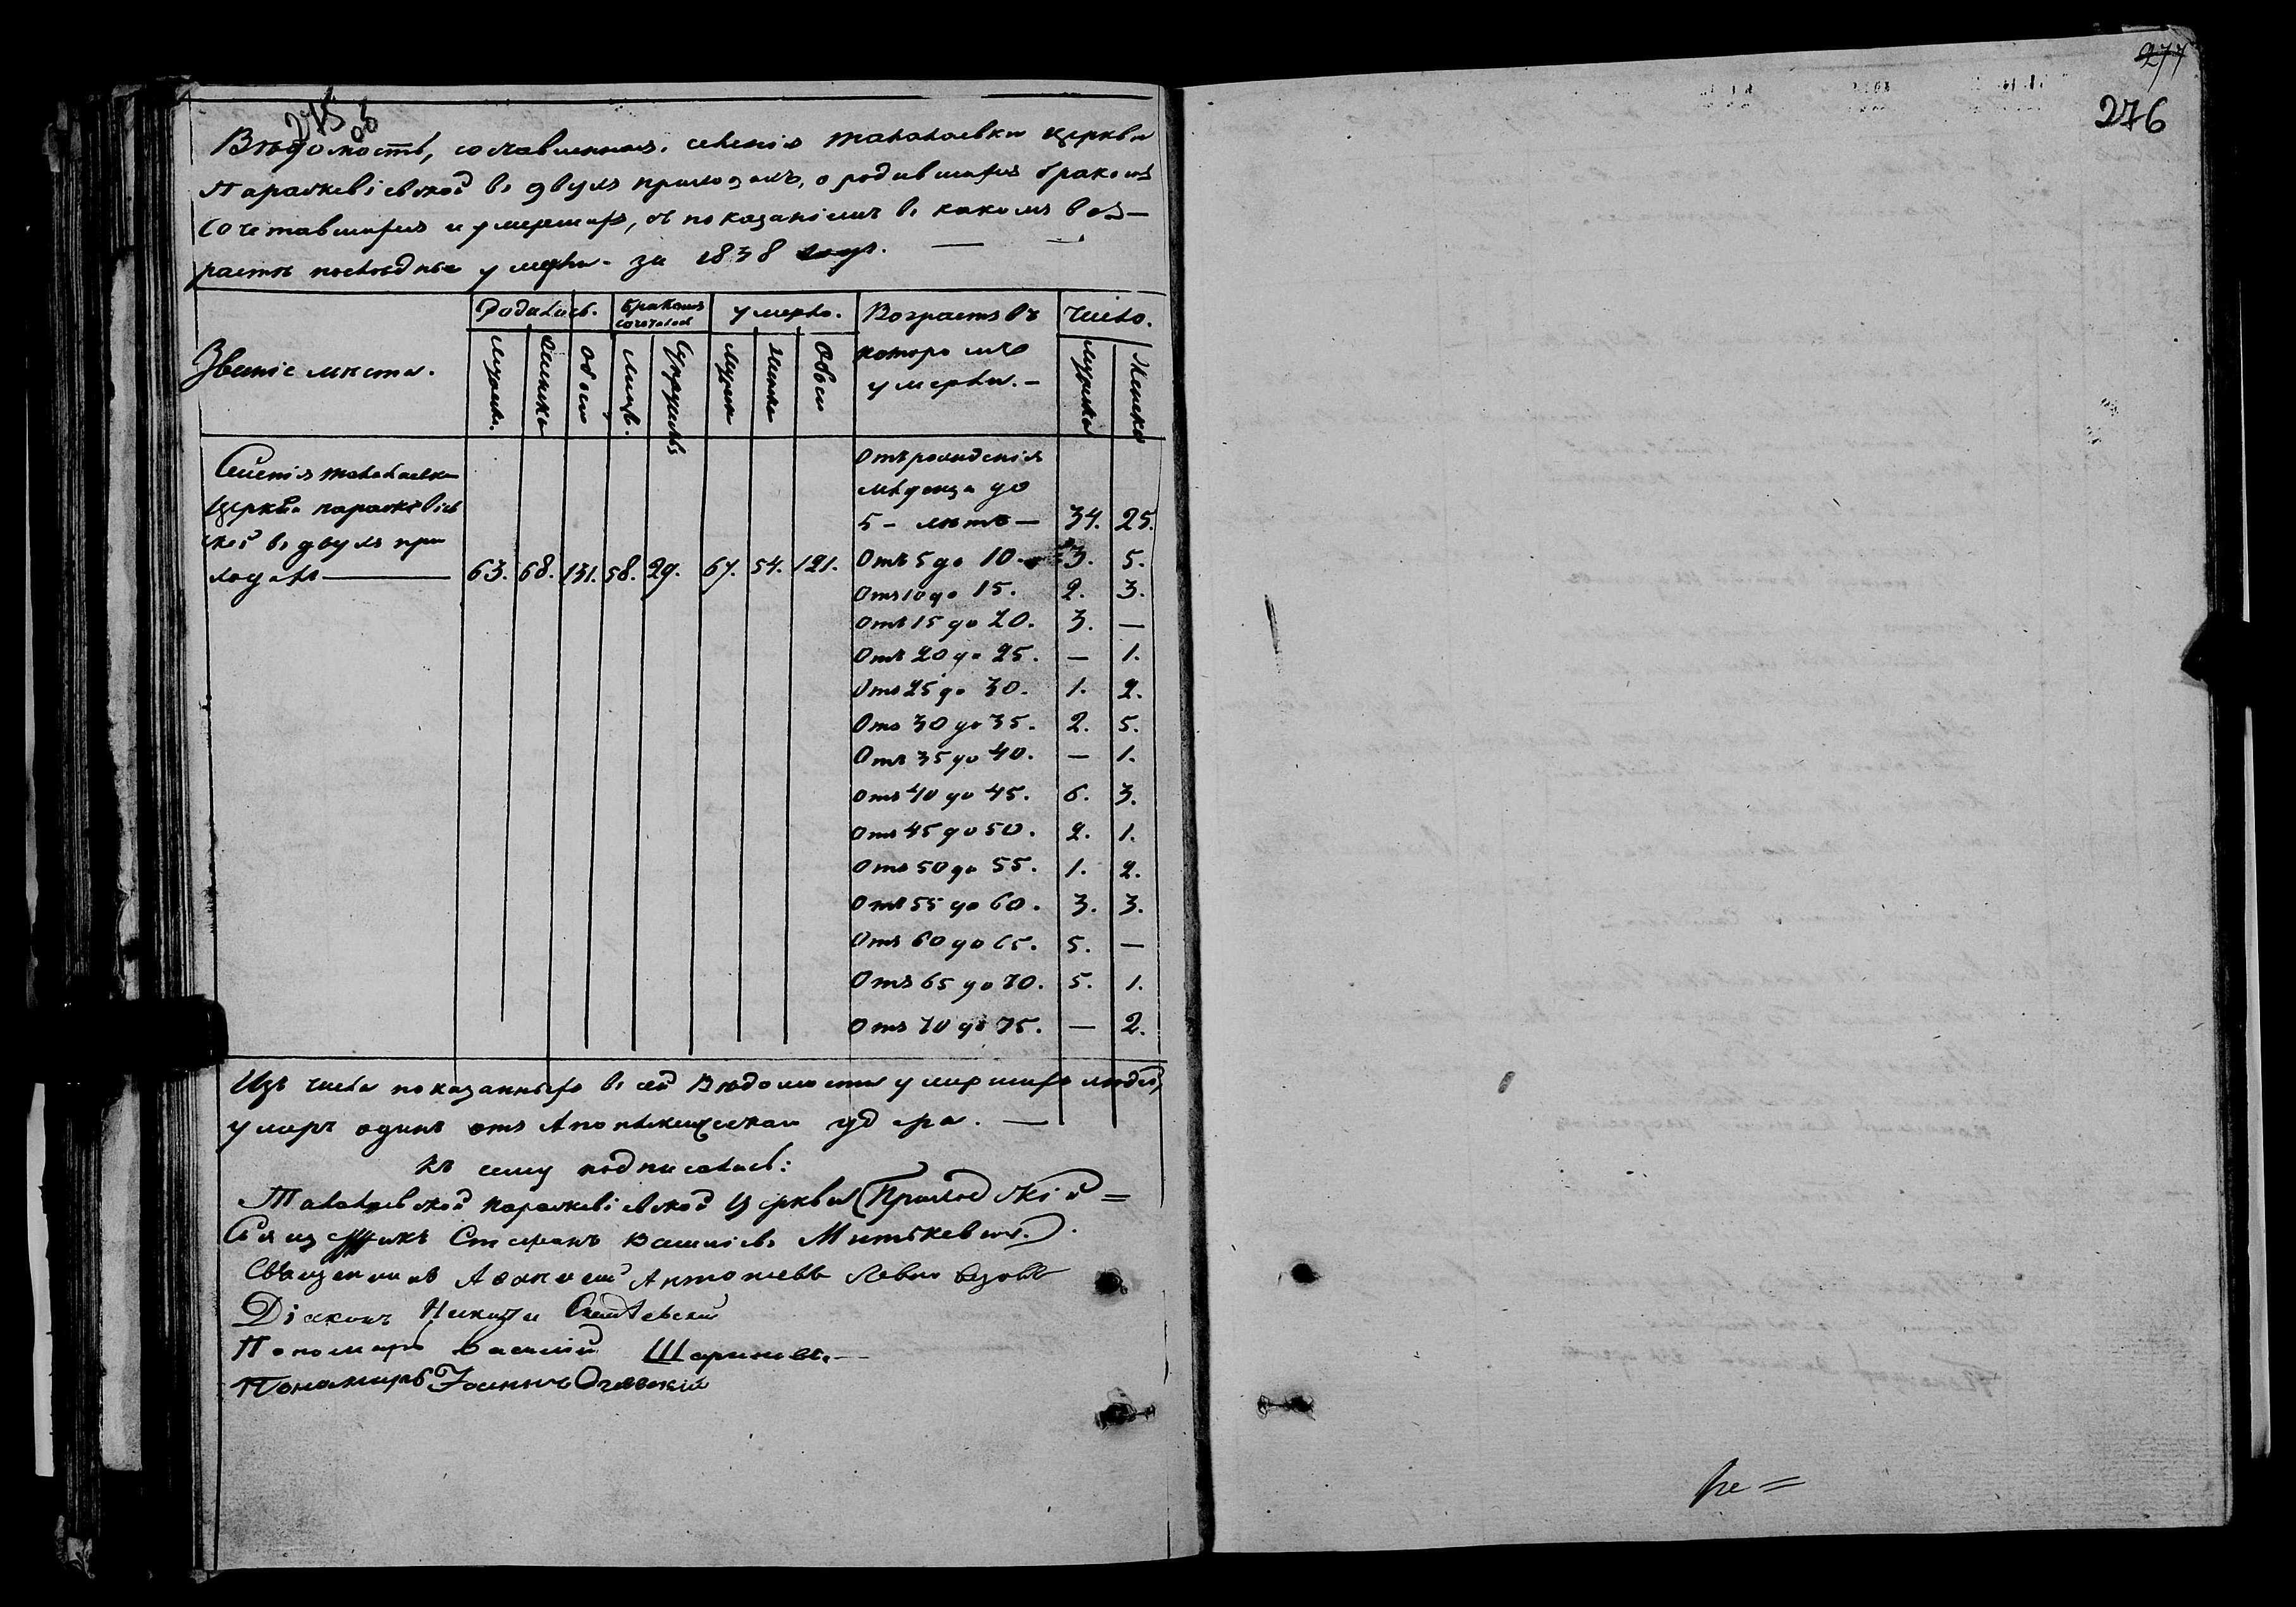 275 об
Вѣдомость, составленная, селенія талалаевки церкви
Параскевіевской въ двухъ приходахъ, о родившихся бракомъ
сочетавшихся и умершихъ, съ показаніемъ въ какомъ воз-
растѣ последніе умерли за 1838 годъ. — —
Званіе места. Родилось. Бракомъ сочеталось умерло. Возрастъ въ которомъ умерли.– Число.
Мужска. Женска Обоего Лицъ. Супружествъ Мужска Женска Обоего Мужска Женска
Селенія талалаевки
церкви параскевіев
ской въ двухъ при
ходахъ — 63. 68. 131. 58. 29. 67. 54. 121.
Отъ рожденія
младенца до
5 – летъ — 34. 25.
Отъ 5 до 10. 3. 5.
Отъ 10 до 15. 2. 3.
Отъ 15 до 20. 3. —
Отъ 20 до 25. — 1.
Отъ 25 до 30. 1. 2.
Отъ 30 до 35. 2. 5.
Отъ 35 до 40. — 1.
Отъ 40 до 45. 6. 3.
Отъ 45 до 50. 2. 1.
Отъ 50 до 55. 1. 2.
Отъ 55 до 60. 3. 3.
Отъ 60 до 65. 5. —
Отъ 65 до 70. 5. 1.
Отъ 70 до 75. — 2.
Изъ числа показанныхъ въ сей Вѣдомости умершихъ людей,
умеръ одинъ отъ Апоплексическаго удара. —
къ сему подписались:
Талалаевской параскевіевской церкви Приходскій =
Священникъ Стефанъ Митькевичъ.
Священникъ Антоніевъ
Діаконъ Никита
Пономарь Василій
Пономарь
277
276